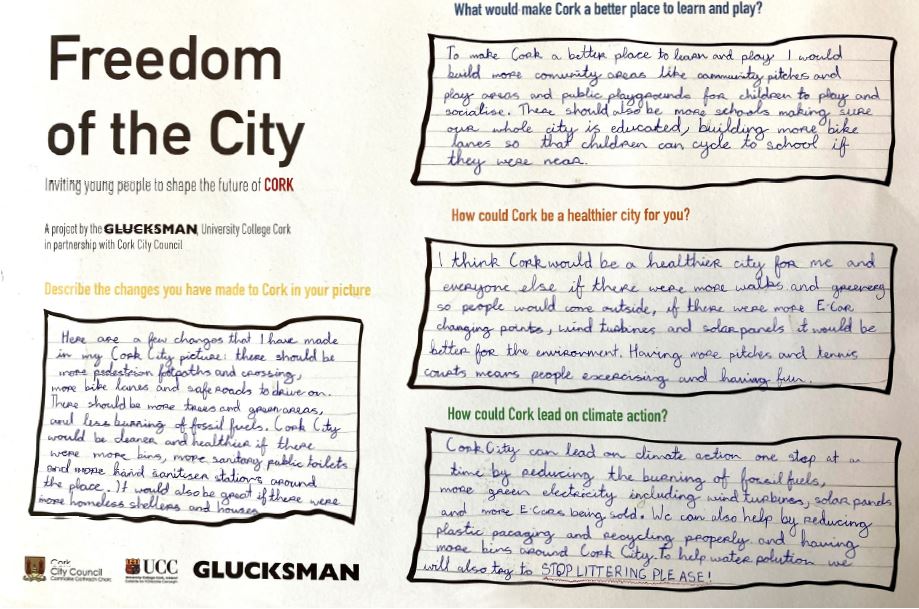 Freedom
of the City
Inviting young people to shape the future of CORK
A project by the GLUCKSMAN, University College Cork
in partnership with Cork City Council
Describe the changes you have made to Cork in your picture
Here are a few changes that I have made
in my Cork City picture: there should be
more pedestrian footpaths and crossing,
more bike lanes and safe roads to drive on.
There should be more trees and green areas,
and less burning of fossil fuels. Cork City
would be cleaner and healthier if there
were more bins, more sanitary public toilets
and more hand sanitiser stations around
the place. It would also be great if there were
more homeless shelters and houses
Cork
City Council
UCC
GLUCKSMAN
What would make Cork a better place to learn and play?
To make Cork a better place to learn and play I would
build more comunity areas like community pitches and
play areas and public playgrounds for children to play and
socialise. There should also be more schools making sure
our whole city is educated, building more bike
lanes so that children can cycle to school if
they were near.
How could Cork be a healthier city for you?
I think Cork would be a healthier city for me and
everyone else if there were more walks and greenery
so people would come outside, if there were more E-Car
charging points, wind turbines and solar panels it would be
better for the environment. Having more pitches and tennis
courts means people excercising and having fun.
How could Cork lead on climate action?
Cork City can lead on climate action one step at a
time by reducing the burning of fossil fuels,
more green electricity including wind turbines, solar panels
and more E-Cars being sold. We can also help by reducing
plastic pacaging and recycling properly and having
more bins around Cork City. To help water polution we
will also try to STOP LITTERING PLEASE!